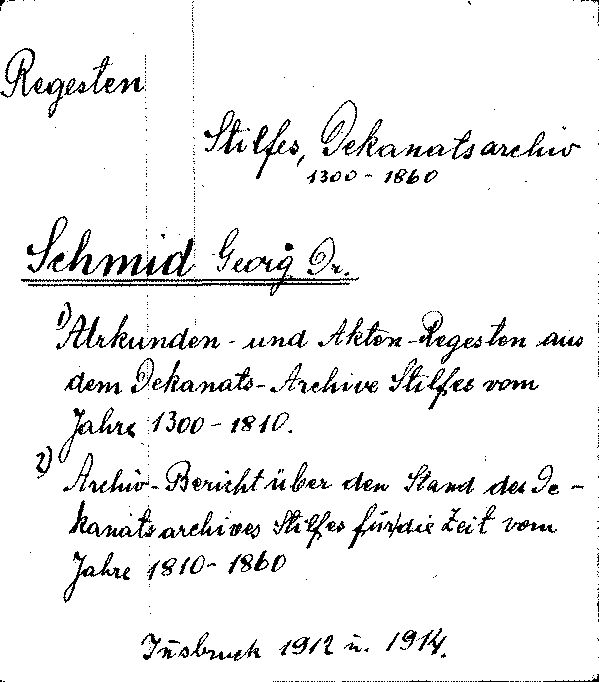 Regesten
Stilfes, Dekanatsarchiv
1300 - 1860
Schmid Georg Dr.
1) Urkunden- und Akten-Regesten aus
dem Dekanats-Archive Stilfes vom
Jahre 1300-1810.
2) Archiv-Bericht über den Stand des De-
kanatsarchives Stilfes für die Zeit vom
Jahre 1810-1860
Iñsbruck 1912 u. 1914.